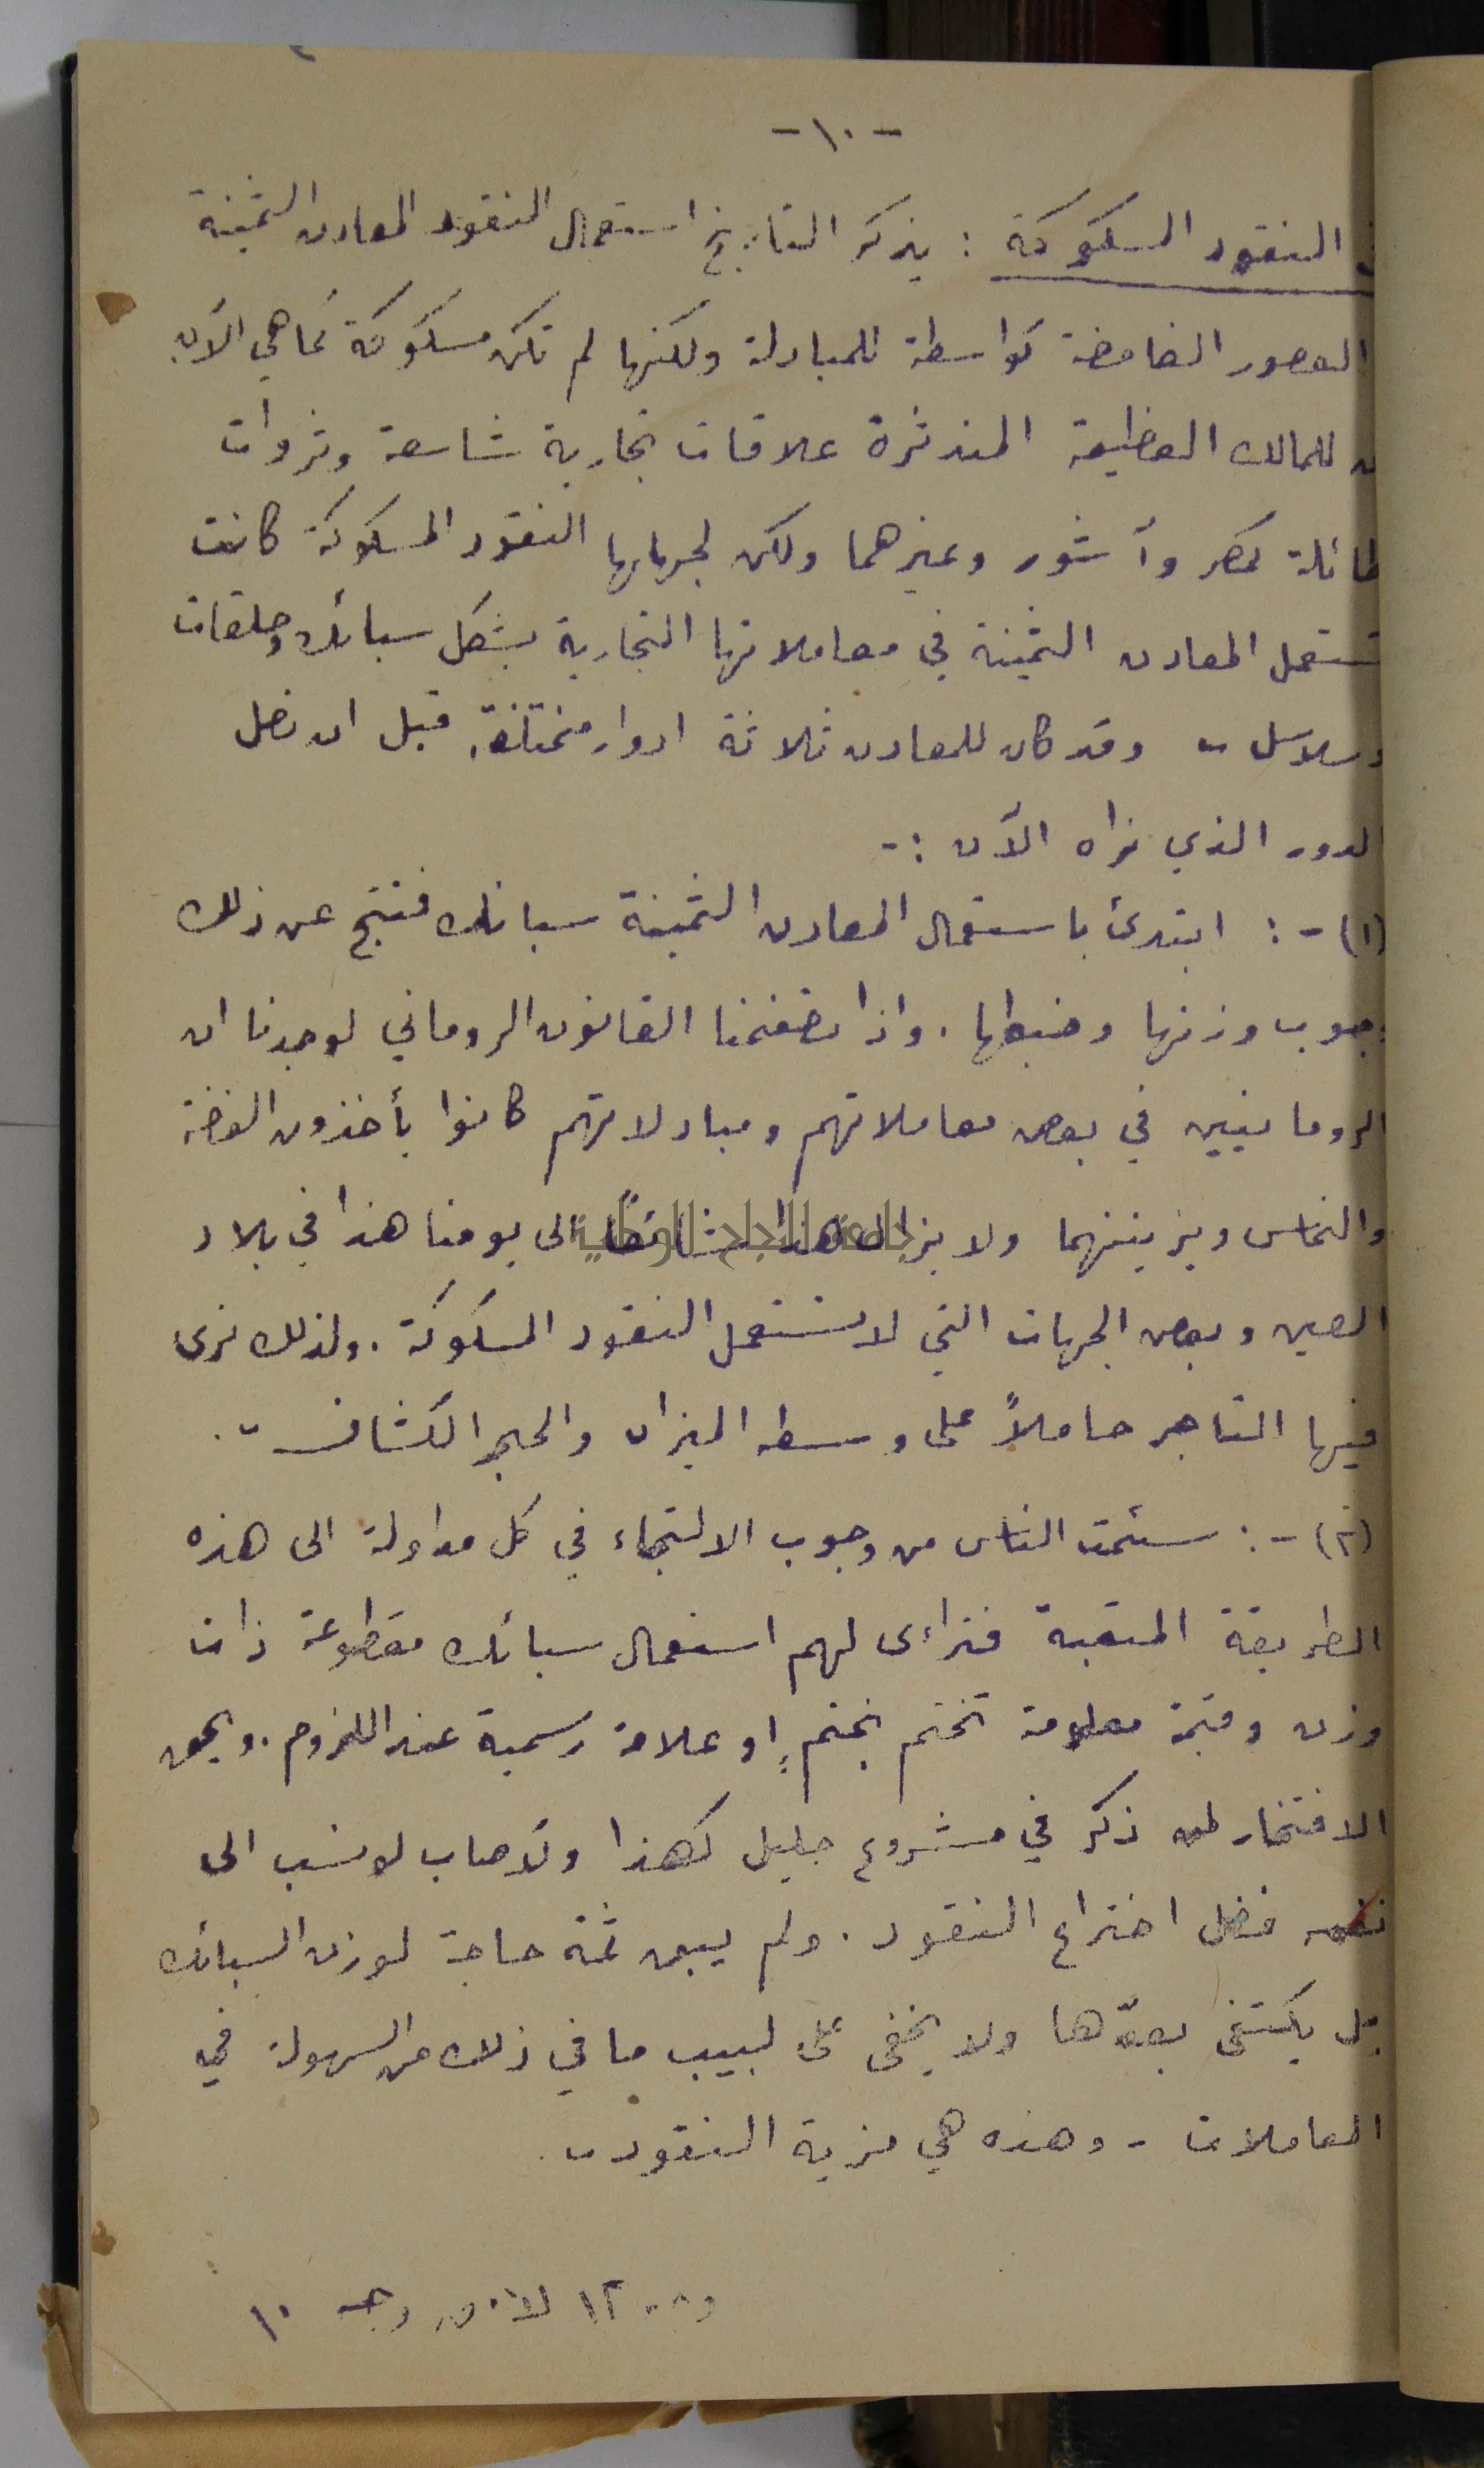 -١٠-
النقود المسكوكة : يذكر التاريخ استعمال النقود المعادن الثمينة
العصور الغامضة كواسطة للمبادلة ولكنها لم تكن مسكوكة كما هي الآن
للمالك العظيمة المندثرة علاقات تجارية شاسعة وثروات
طائلة كمصر وآشور وغيرهما ولكن لجهلها النقود المسكوكة كانت
تستعمل المعادن الثمينة في معاملاتها التجارية بشكل سبائك وحلقات
وسلاسل - وقد كان للمعادن ثلاثة ادوار مختلفة قبل ان نصل
الدور الذي نراه الآن :-
(١) -: ابتدئ باستعمال المعادن الثمينة سبائك فنتج عن ذلك
وجوب وزنها وضبطها . واذا تصفحنا القانون الروماني لوجدنا ان
الرومانيين في بعض معاملاتهم ومبادلاتهم كانوا يأخذون الفضة
والنحاس ويزينونهما ولا يزال هذا شائعاً الى يومنا هذا في بلاد
جامعة النجاح الوطنية
الصين وبعض الجهات التي لا تستعمل النقود المسكوكة . ولذلك نرى
فيها التاجر حاملاً على وسطه الميزان والحجر الكشاف -.
(٢) -: سئمت الناس من وجوب الالتجاء في كل مداولة الى هذه
الطريقة المتعبة فتراءى لهم استعمال سبائك مقطوعة ذات
وزن وقيمة معلومة تختم بختمٍ او علامة رسمية عند اللزوم . ويحق
الافتخار لمن ذكر في مشروع جليل كهذا ولأصاب لو نسب الى
نفسه فضل اختراع النقود . ولم يبق ثمة حاجة لوزن السبائك
بل يكتفى بعدّها ولا يخفى على لبيب ما في ذلك من السهولة في
المعاملات - وهذه هي مزية النقود -.
وجه ١٠